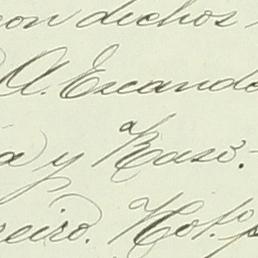 con dichos
A. Escando
a y Raso.
neiro. Not.